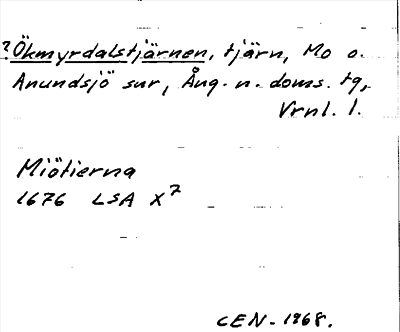 ?Ökmyrdalstjärnen, tjärn, Mo o.
Anundsjö snr, Ång. n. doms. tg,
Vrnl. l.
Miötierna
1676 LSA X7
CEN-1968.